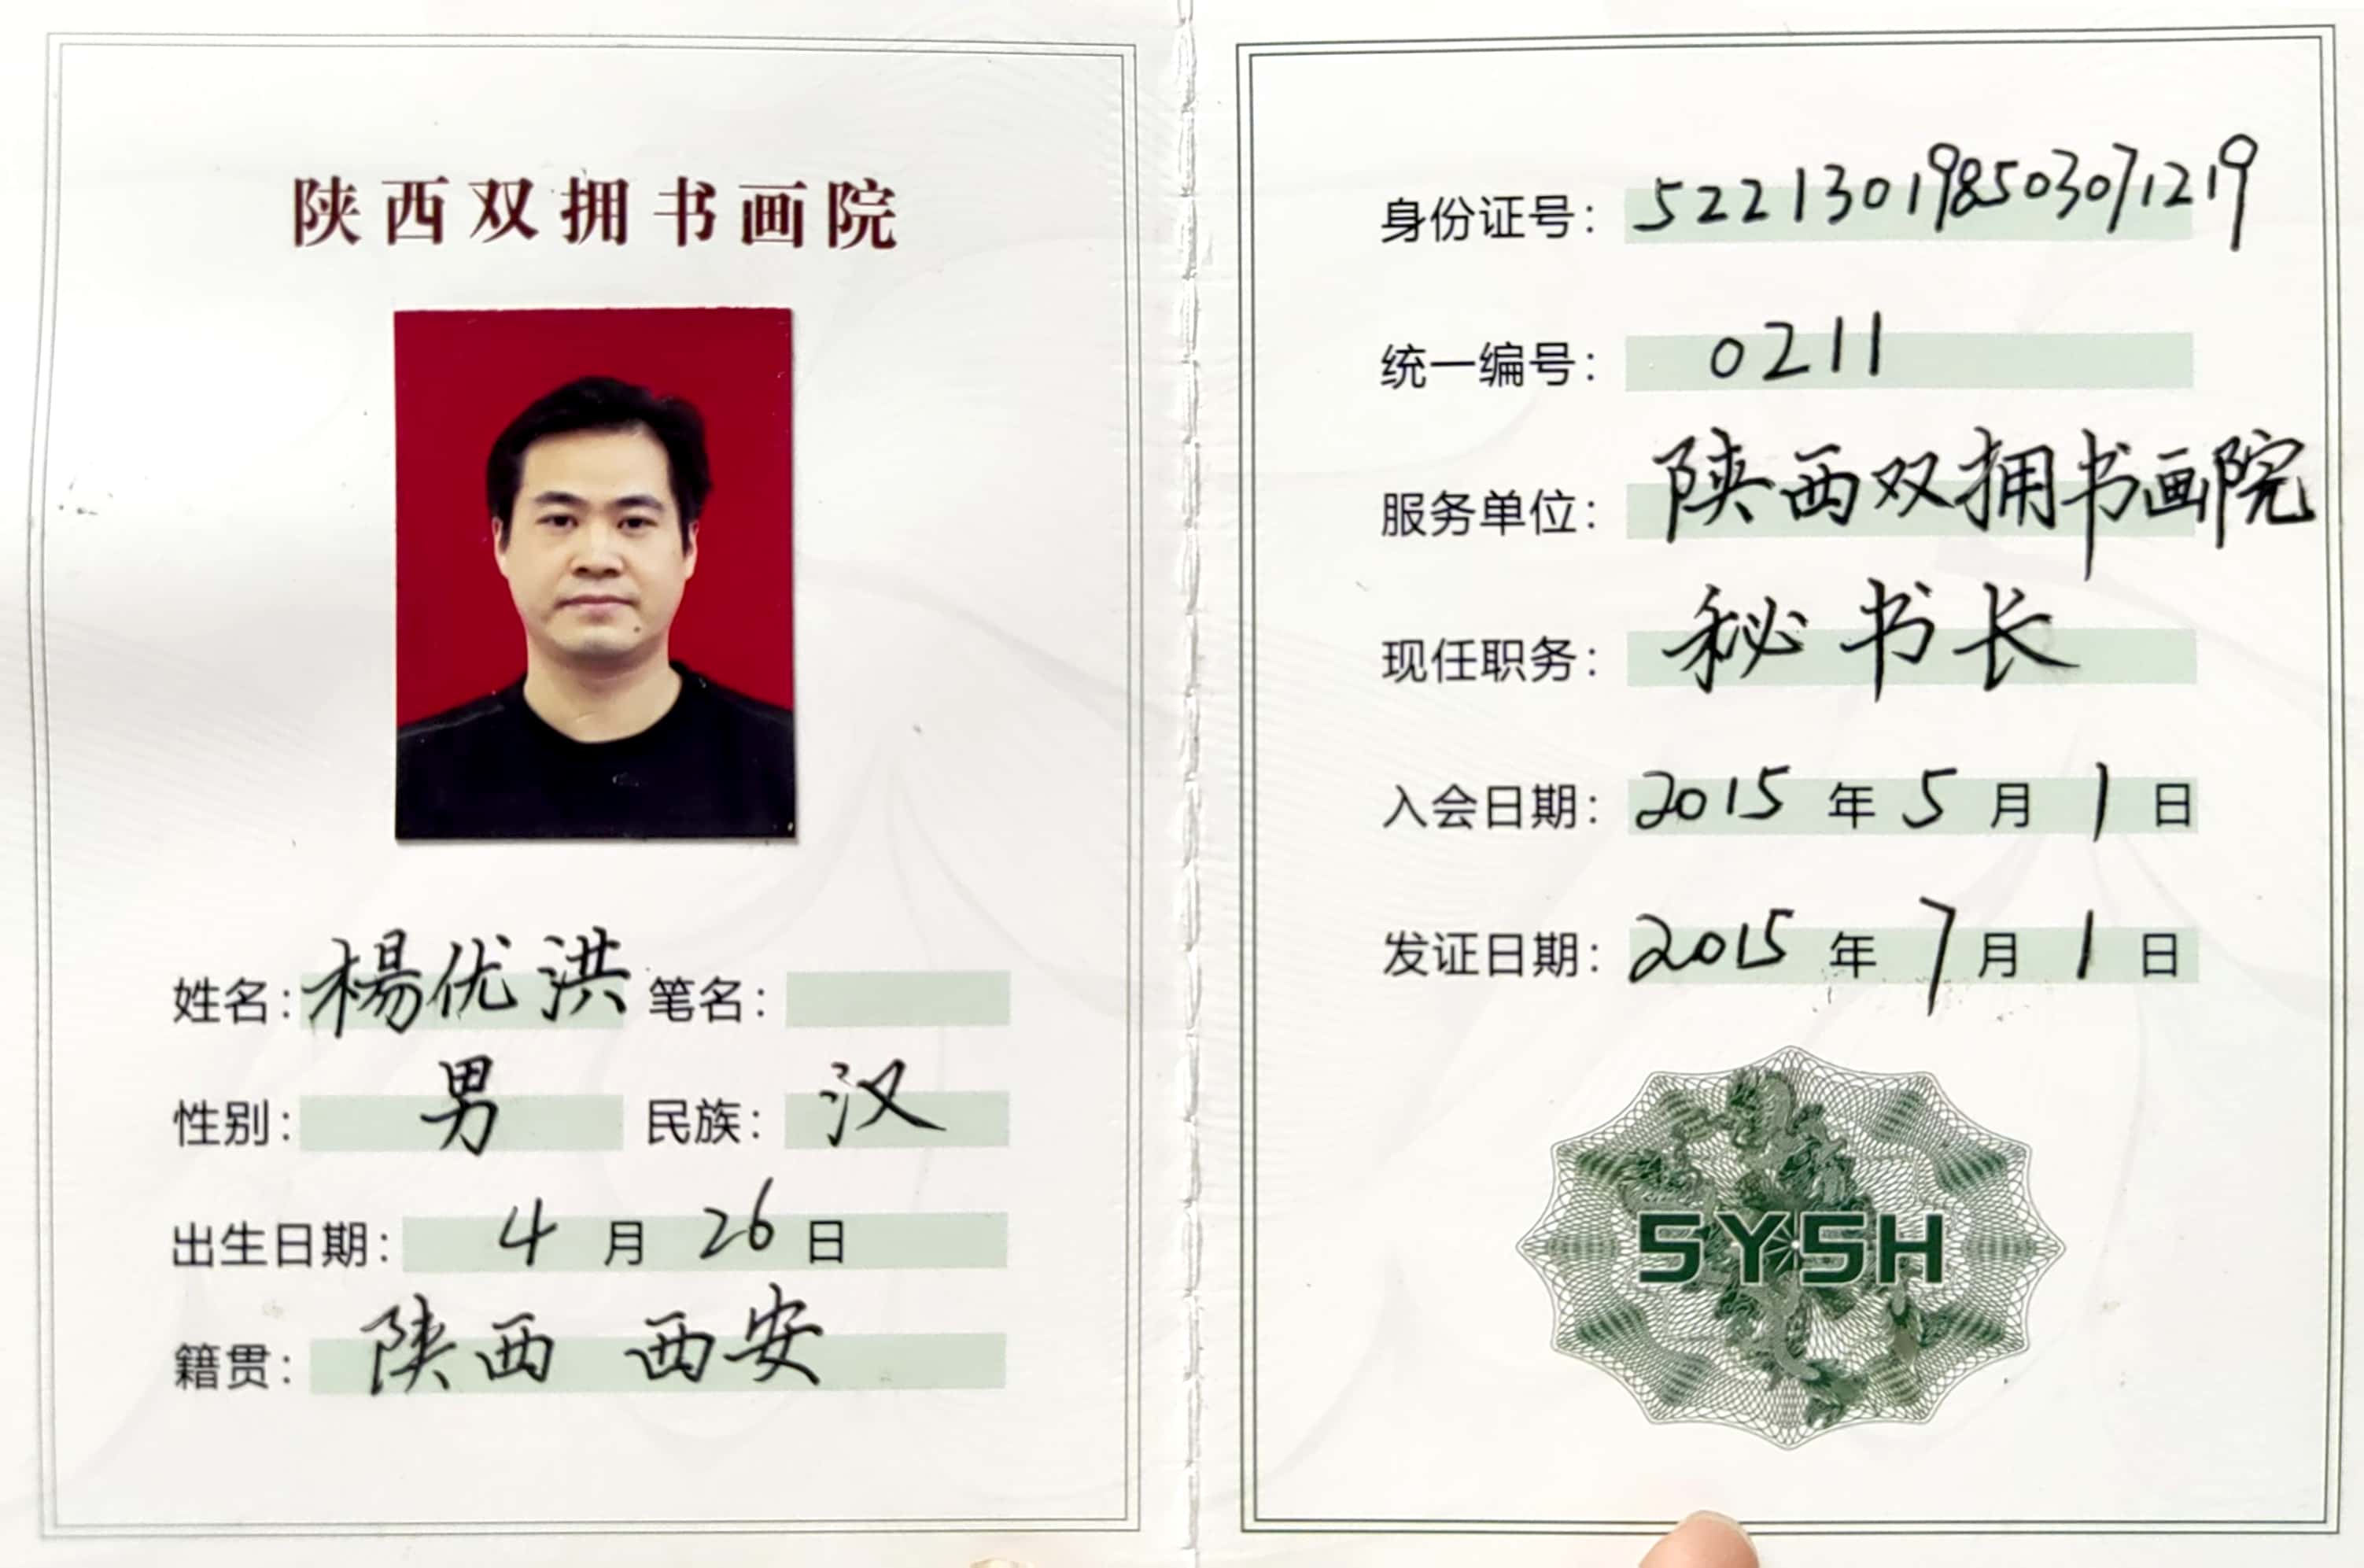 陕西双拥书画院
姓名：楊优洪 笔名：
性别：男 民族：汉
出生日期：4月26日
籍贯：陕西 西安
身份证号：522130198503071219
统一编号：0211
服务单位：陕西双拥书画院
现任职务：秘书长
入会日期：2015年5月1日
发证日期：2015年7月1日
SYSH